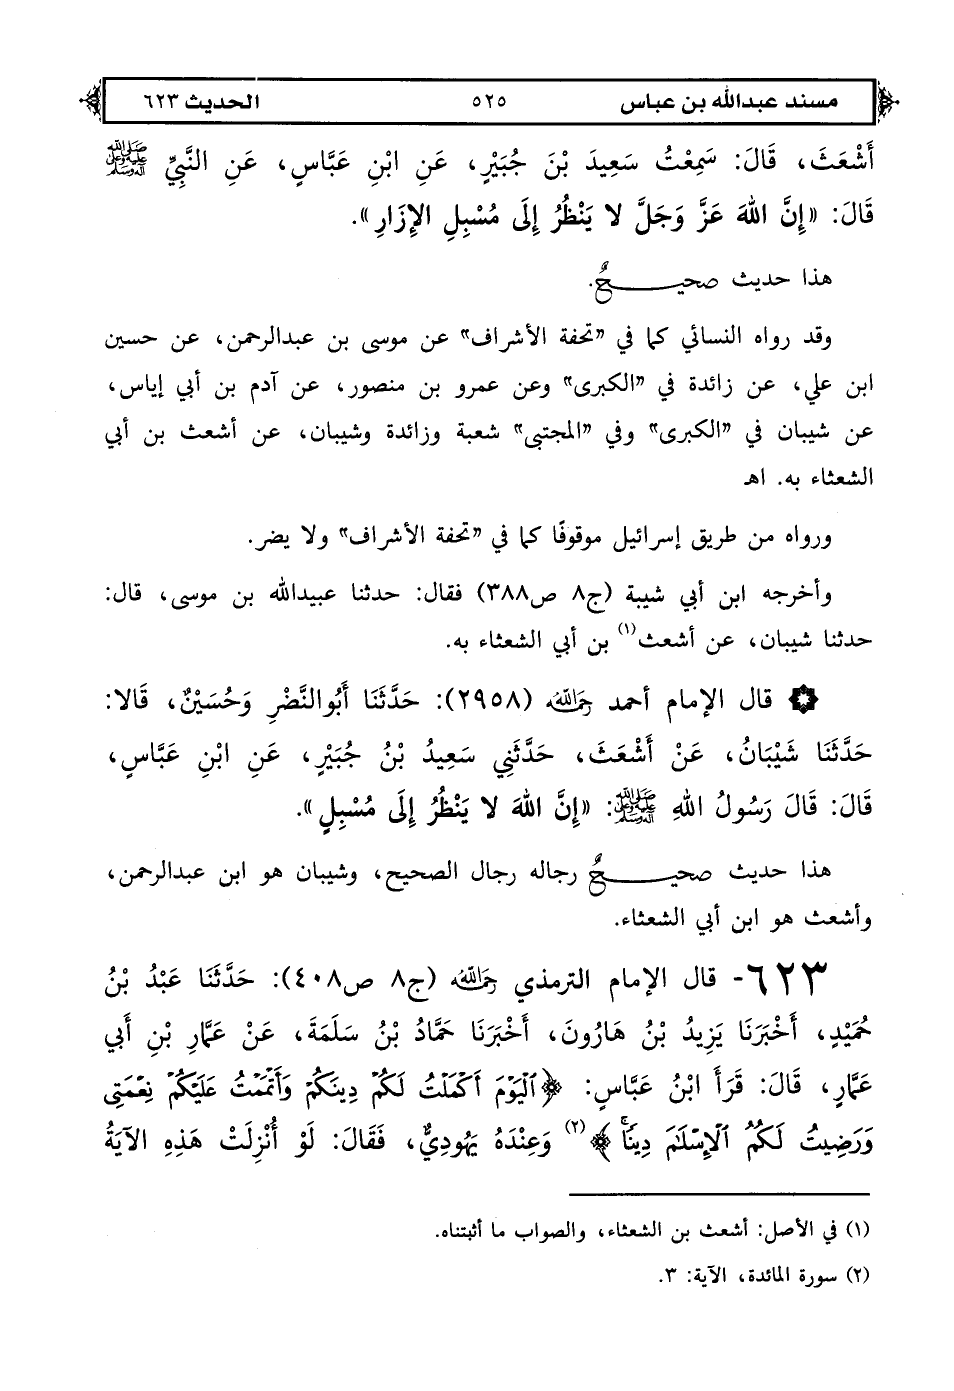 مسند عبدالله بن عباس ٥٢٥ الحديث ٦٢٣
أَشْعَثَ، قَالَ: سَمِعْتُ سَعِيدَ بْنَ جُبَيْرٍ، عَنِ ابْنِ عَبَّاسٍ، عَنِ النَّبِيِّ ﷺ
قَالَ: «إِنَّ اللهَ عَزَّ وَجَلَّ لا يَنْظُرُ إِلَى مُسْبِلِ الإِزَارِ».
هذا حديث صحيـــــحٌ.
وقد رواه النسائي كما في «تحفة الأشراف» عن موسى بن عبدالرحمن، عن حسين
ابن علي، عن زائدة في «الكبرى» وعن عمرو بن منصور، عن آدم بن أبي إياس،
عن شيبان في «الكبرى» وفي «المجتبى» شعبة وزائدة وشيبان، عن أشعث بن أبي
الشعثاء به. اهـ
ورواه من طريق إسرائيل موقوفًا كما في «تحفة الأشراف» ولا يضر.
وأخرجه ابن أبي شيبة (ج٨ ص٣٨٨) فقال: حدثنا عبيدالله بن موسى، قال:
حدثنا شيبان، عن أشعث(١) بن أبي الشعثاء به.
قال الإمام أحمد رحمه الله (٢٩٥٨): حَدَّثَنَا أَبُوالنَّضْرِ وَحُسَيْنٌ، قَالا:
حَدَّثَنَا شَيْبَانُ، عَنْ أَشْعَثَ، حَدَّثَنِي سَعِيدُ بْنُ جُبَيْرٍ، عَنِ ابْنِ عَبَّاسٍ،
قَالَ: قَالَ رَسُولُ اللهِ ﷺ: «إِنَّ اللهَ لا يَنْظُرُ إِلَى مُسْبِلٍ».
هذا حديث صحيـــــحٌ رجاله رجال الصحيح، وشيبان هو ابن عبدالرحمن،
وأشعث هو ابن أبي الشعثاء.
٦٢٣- قال الإمام الترمذي رحمه الله (ج٨ ص٤٠٨): حَدَّثَنَا عَبْدُ بْنُ
حُمَيْدٍ، أَخْبَرَنَا يَزِيدُ بْنُ هَارُونَ، أَخْبَرَنَا حَمَّادُ بْنُ سَلَمَةَ، عَنْ عَمَّارِ بْنِ أَبِي
عَمَّارٍ، قَالَ: قَرَأَ ابْنُ عَبَّاسٍ: ﴿ٱلْيَوْمَ أَكْمَلْتُ لَكُمْ دِينَكُمْ وَأَتْمَمْتُ عَلَيْكُمْ نِعْمَتِى
وَرَضِيتُ لَكُمُ ٱلْإِسْلَٰمَ دِينًا﴾(٢) وَعِنْدَهُ يَهُودِيٌّ، فَقَالَ: لَوْ أُنْزِلَتْ هَذِهِ الآيَةُ
(١) في الأصل: أشعث بن الشعثاء، والصواب ما أثبتناه.
(٢) سورة المائدة، الآية: ٣.